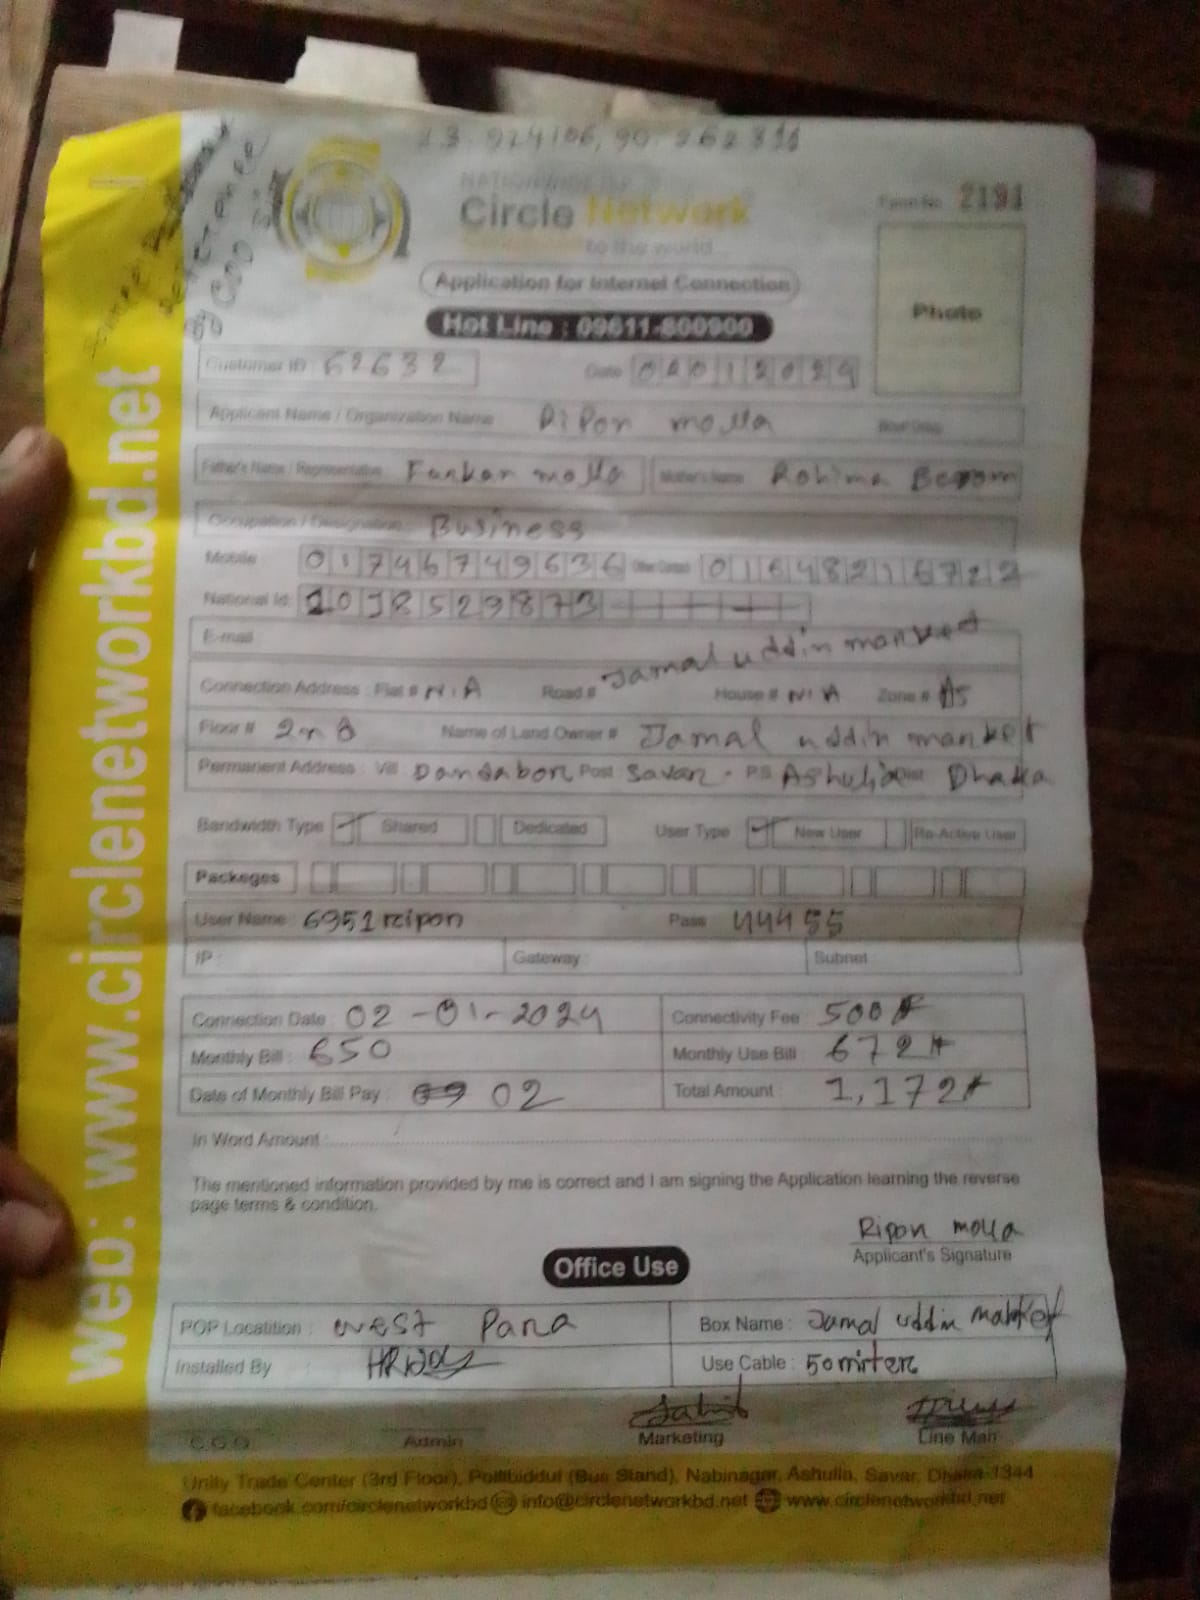 23.924106, 90.262816
Circle Network
to the world
Form No. 2191
Application for Internet Connection
Hot Line : 09611-800900
Photo
Customer ID : 62632 Date 02012024
Applicant Name / Organization Name Ripon molla Blood Group
Father's Name / Representative Farkan molla Mother's Name Rohima Begom
Occupation / Designation Business
Mobile 01746749636 Other Contact 01648216722
National Id: 1018529873
E-mail
Connection Address : Flat # N.A Road # Jamal uddin market House # N.A Zone # A5
Floor # 2nd Name of Land Owner # Jamal uddin market
Permanent Address : Vill Dandabor Post Savar. PS Ashulia Dist Dhaka
Bandwidth Type Shared Dedicated User Type New User Re-Active User
Packeges
User Name: 6951ripon Pass 44455
IP : Gateway : Subnet :
Connection Date : 02-01-2024 Connectivity Fee : 500
Monthly Bill : 650 Monthly Use Bill : 672
Date of Monthly Bill Pay : 02 Total Amount : 1,172
In Word Amount :
The mentioned information provided by me is correct and I am signing the Application learning the reverse
page terms & condition.
Ripon molla
Applicant's Signature
Office Use
POP Locatition : west Para Box Name : Jamal uddin market
Installed By : Use Cable : 50miter
C O O Admin Marketing Line Man
Unity Trade Center (3rd Floor), Pollibiddut (Bus Stand), Nabinagar, Ashulia, Savar, Dhaka-1344
facebook.com/circlenetworkbd info@circlenetworkbd.net www.circlenetworkbd.net
web: www.circlenetworkbd.net